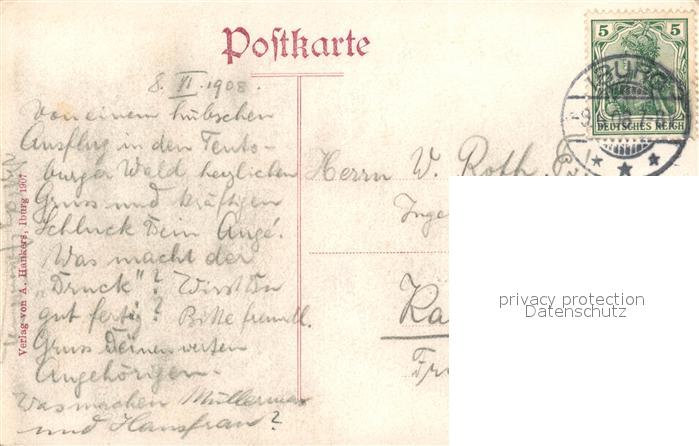 Postkarte
5 5
DEUTSCHES REICH
IBURG
8. VI. 1908.
Von einem hübschen
Ausflug in den Teuto-
burger Wald herzlichen
Gruss und kräftigen
Schluck Dein Angé.
Was macht der
„Druck"? Wirst Du
gut fertig? Bitte freundl.
Gruss Deinen werten
Angehörigen.
Was machen
und Hausfrau?
Herrn W. Roth.
Inge
Ka
Verlag von A. Hankers, Iburg 1907
privacy protection
Datenschutz